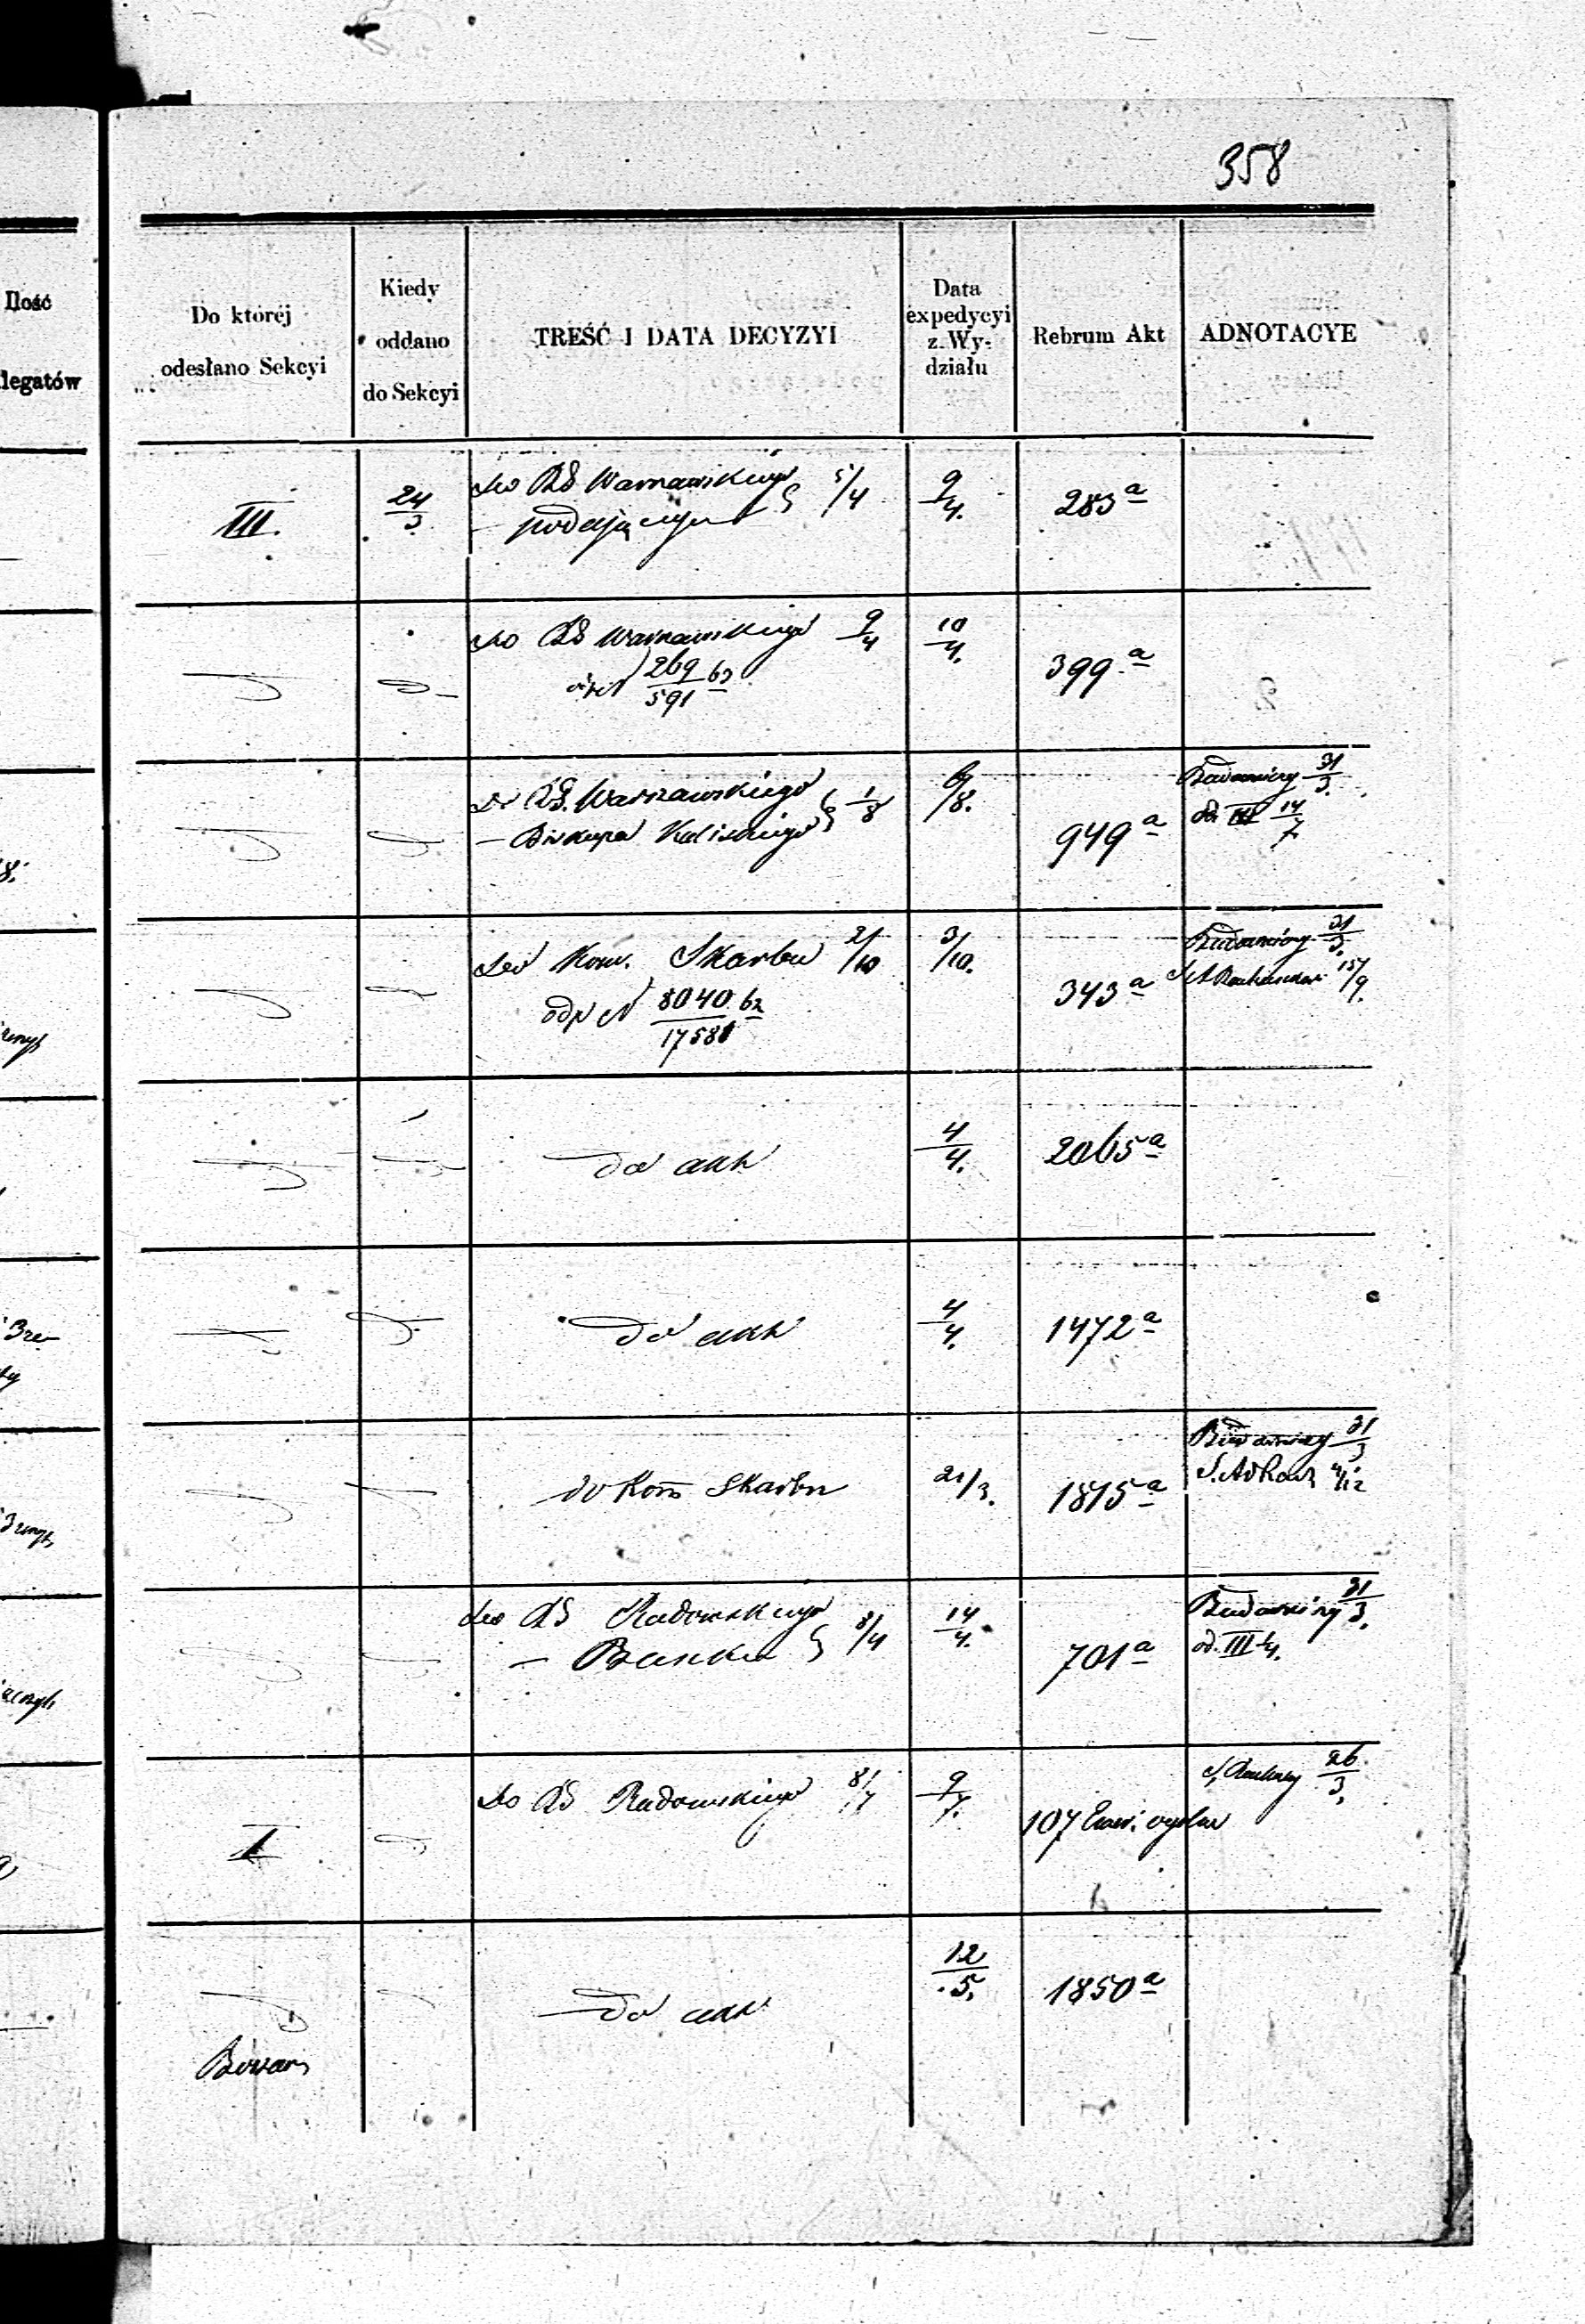 358
Ilość
legatów
Do której
odesłano Sekcyi
Kiedy
oddano
do Sekcyi
TREŚĆ I DATA DECYZYI
Data
expedycyi
z Wy-
działu
Rebrum Akt
ADNOTACYE
III.
24/3
Do RG Warszawskiego 5/4
– podającym
9/4.
283 a
Do RG Warszawskiego 9/4
269/591 62
10/4.
399 a
Do RG. Warszawskiego 1/8
– Biskupa Kaliskiego
6/8.
949 a
Budowniczy 31/3.
od III 14/7
Do Kom. Skarbu 2/10
odp N 8040/17581 62
3/10.
343 a
Budowniczy 31/3.
15/9.
do akt
4/4.
2065 a
do akt
4/4.
1472 a
do Kom Skarbu
21/3.
1875 a
Budowniczy 31/3
4/12
Do RG Radomskiego 8/4
– Banku
14/4.
701 a
Budowniczy 31/3.
od. III /4.
I
Do RG Radomskiego 8/7
9/7.
107
26/3.
do akt
12/5.
1850 a